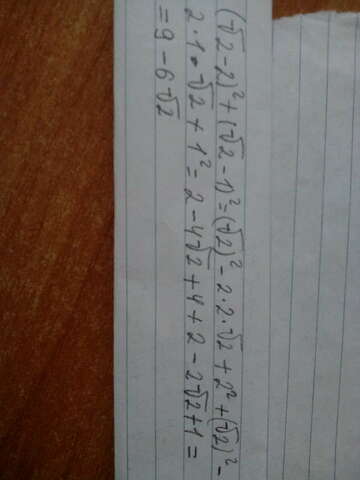 (√2-2)²+(√2-1)²=(√2)²-2·2·√2+2²+(√2)²-
2·1·√2+1²=2-4√2+4+2-2√2+1=
=9-6√2